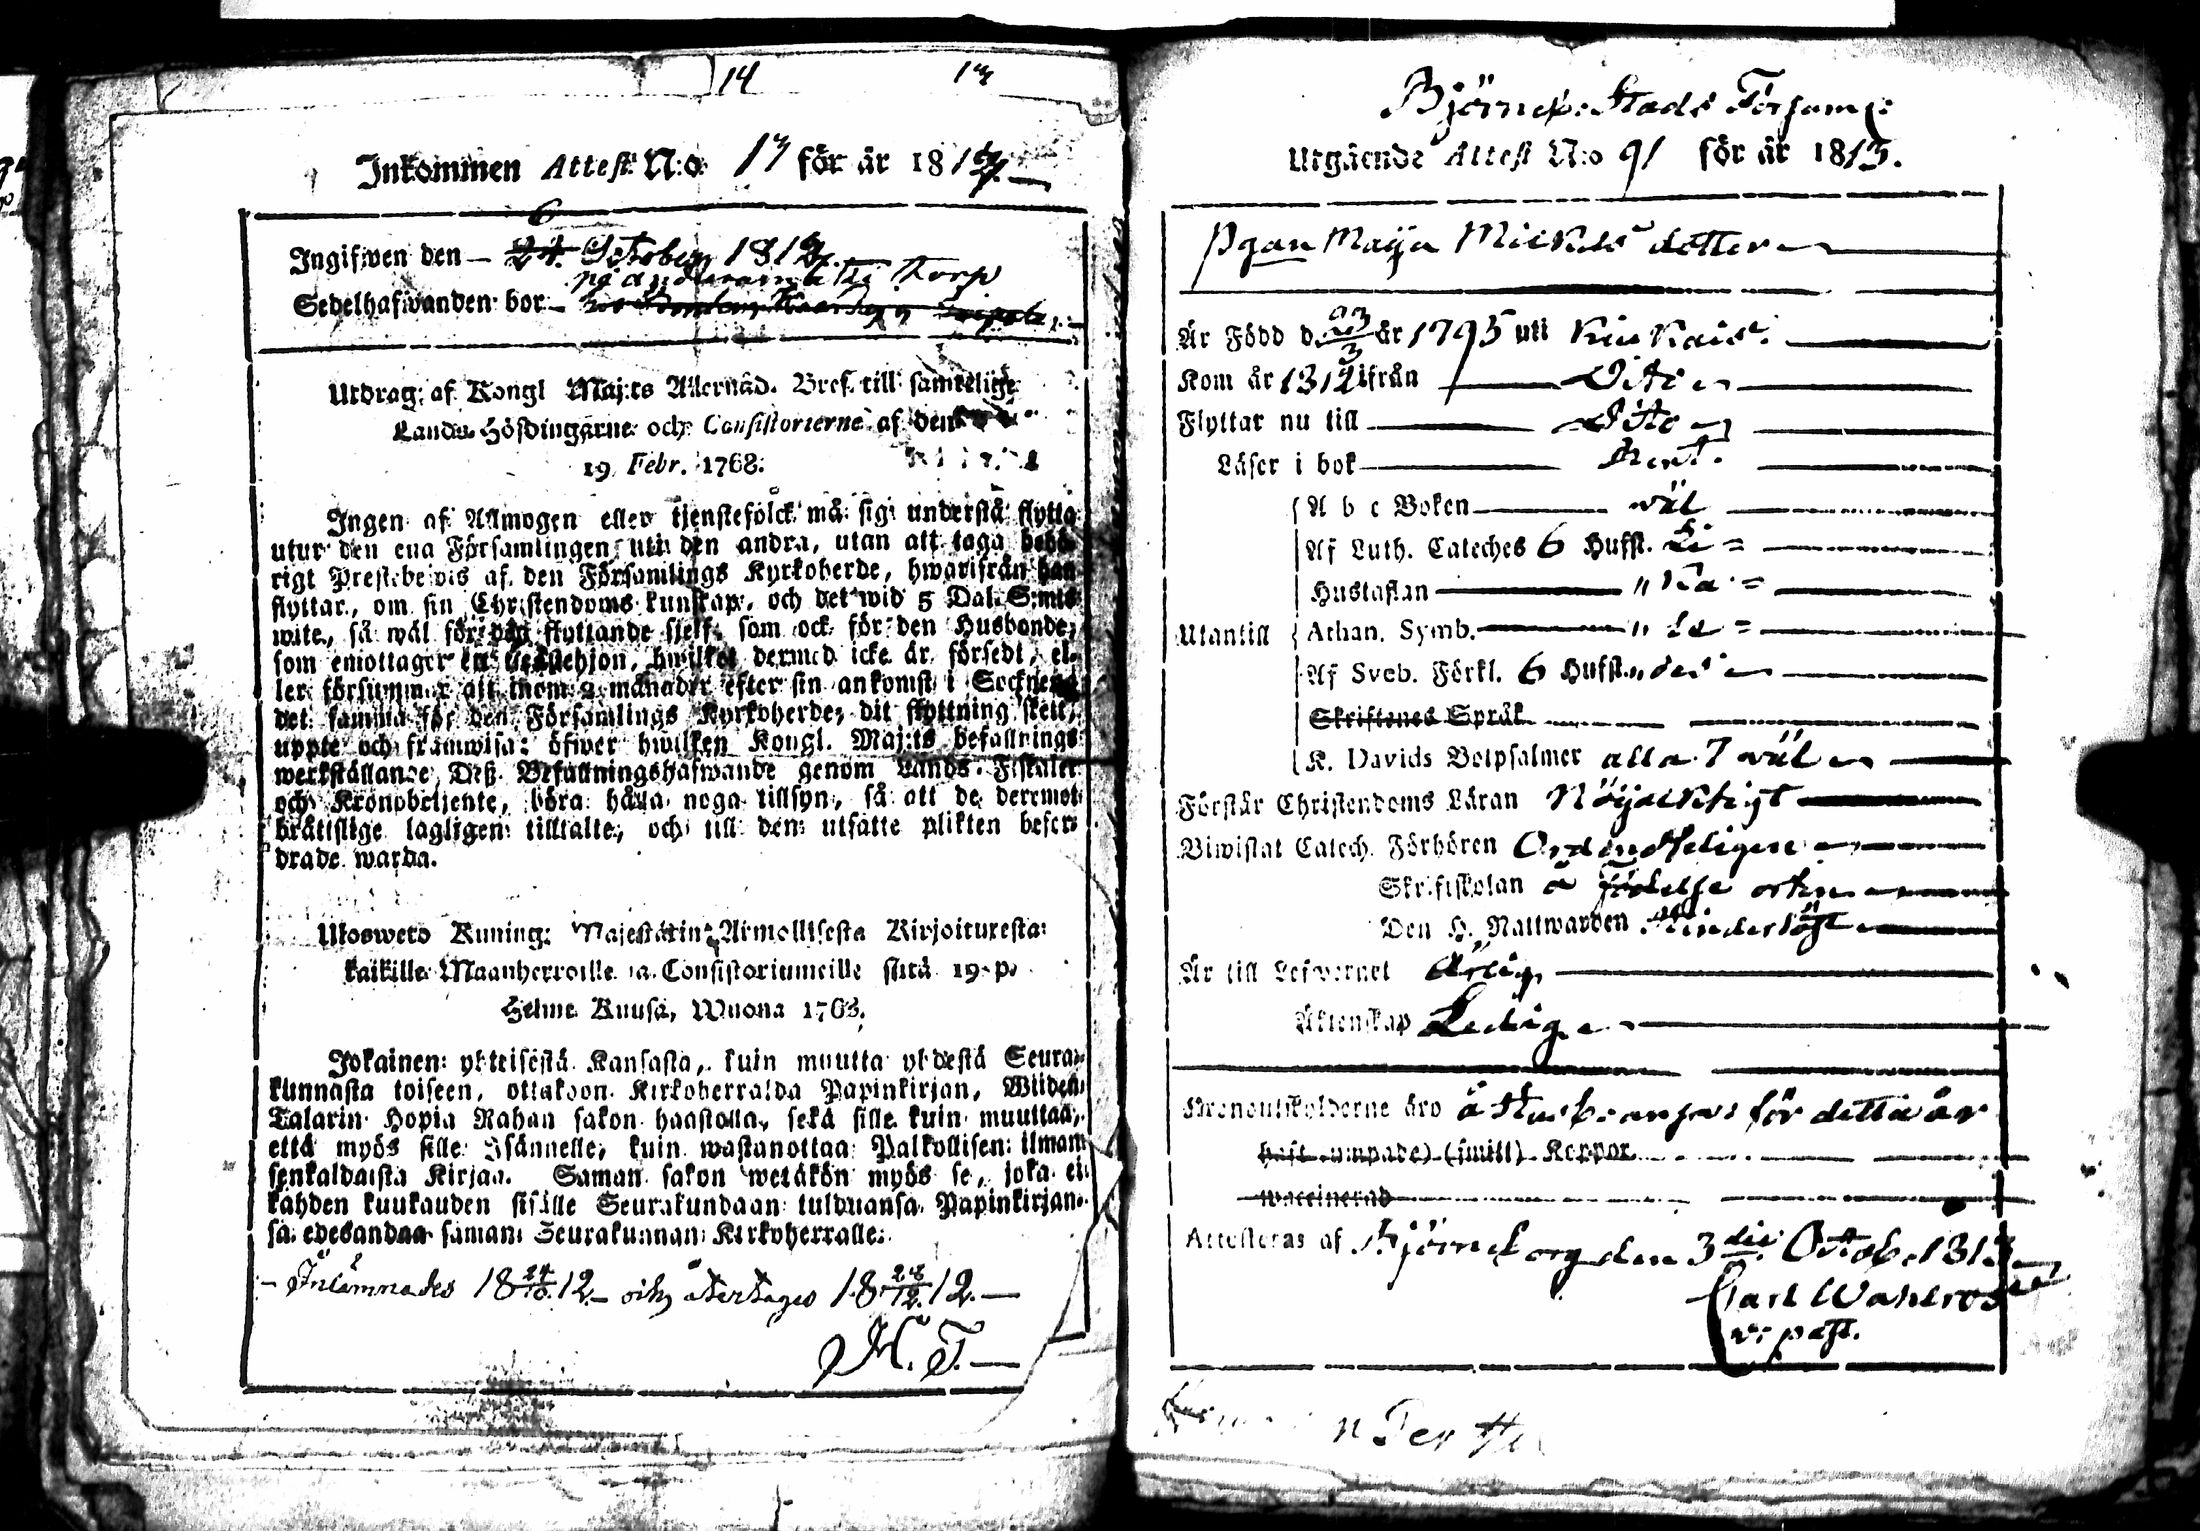 14 13
Inkommen Attest N:o 13 för år 181
6
Ingifwen den 24. October 181
på Torp
Sedelhafwanden bor
Utdrag af Kongl Maj:ts Allernåd. Bref till samtelige
Lands Höfdingarne och Consistorierne af den
19 Febr. 1768.
Ingen af Allmogen eller tjenstefolck må sig understå flytta
utur den ena Församlingen uti den andra, utan att taga behö-
rigt Prestebewis af den Församlings Kyrkoherde, hwarifrån han
flyttar, om sin Christendoms kunskap, och det wid 5 Dal. S:mts
wite, så wäl för den flyttande sjelf, som ock för den Husbonde,
som emottager en tjenstehjon, hwilket dermed icke är försedt, el-
ler försummar att inom 2 månader efter sin ankomst i Socknen
det samma för den Församlings Kyrkoherde, dit flyttning skett,
uppte och framwisa: öfwer hwilken Kongl. Maj:ts befallnings
werkställande Dess Befallningshafwande genom Lands-Fiskaler
och Kronobetjente, böra hålla noga tillsyn, så att de deremot
brättslige lagligen tilltalte, och till den utsatte plikten befor-
drade warda.
Uloswetd Kuning: Majestätin Armollisesta Kirjoituxesta
kaikille Maanherroille ja Consistoriumeille siitä 19 p.
Helme Kuusa, Wuona 1768.
Jokainen yhteisestä Kansasta, kuin muutta yhdestä Seura-
kunnasta toiseen, ottakoon Kirkoherralda Papinkirjan, Wiiden
Talarin Hopia Rahan sakon haastolla, sekä sille kuin muuttaa,
että myös sille Isännelle, kuin wastanottaa Palkollisen ilman
senkaldaista Kirjaa. Saman sakon wetäkön myös se, joka ei
kahden kuukauden sisälle Seurakundaan tulduansa Papinkirjan-
sa edesandaa saman Seurakunnan Kirkoherralle.
Inlämnades 18 24/10 12 och återtages 18 28/12 12.
H. T.
Björneb: Stads Församl:
Utgående Attest N:o 91 för år 1813.
Pgan Maija Mickels dotter
Är Född d. 23/3 år 1795 uti Kiukais.
Kom år 1812 ifrån Dito
Flyttar nu till Dito
Läser i bok Rent.
A b c Boken wäl
Af Luth. Cateches 6 Hufst. Li =
Hustaflan " Ka =
Athan. Symb. " Le =
Utantill
Af Sveb. Förkl. 6 Hufst. " des
Skriftenes Språk
K. Davids Botpsalmer alla 7 wäl
Förstår Christendoms Läran Nöjacktigt
Biwistat Catech. Förhören Ordenteligen
Skriftskolan å Födelse orten
Den H. Nattwarden ohinderligt
Är till Lefwernet Ärlig
Äktenskap Ledig
Kronoutskylderne äro för detta år
haft (umpade) (smitt) Koppor
waccinerad
Attesteras af Björneborg den 3 die Octob. 1813
Carl Wahlroos
v: past.